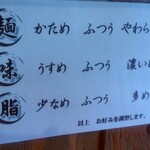 麺 かため ふつう やわら
味 うすめ ふつう 濃いめ
脂 少なめ ふつう 多め
以上 お好みを御指示します。